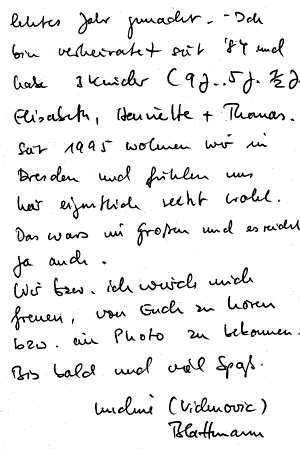 letztes Jahr gemacht. - Ich
bin verheiratet seit '84 und
habe 3 Kinder (9 J., 5 J., ½ J.
Elisabeth, Henriette + Thomas.
Seit 1995 wohnen wir in
Dresden und fühlen uns
hier eigentlich recht wohl.
Das wars im Großen und es reicht
ja auch.
Wir bzw. ich würde mich
freuen, von Euch zu hören
bzw. ein Photo zu bekommen.
Bis bald und viel Spaß.
(Vidmovic)
Blattmann